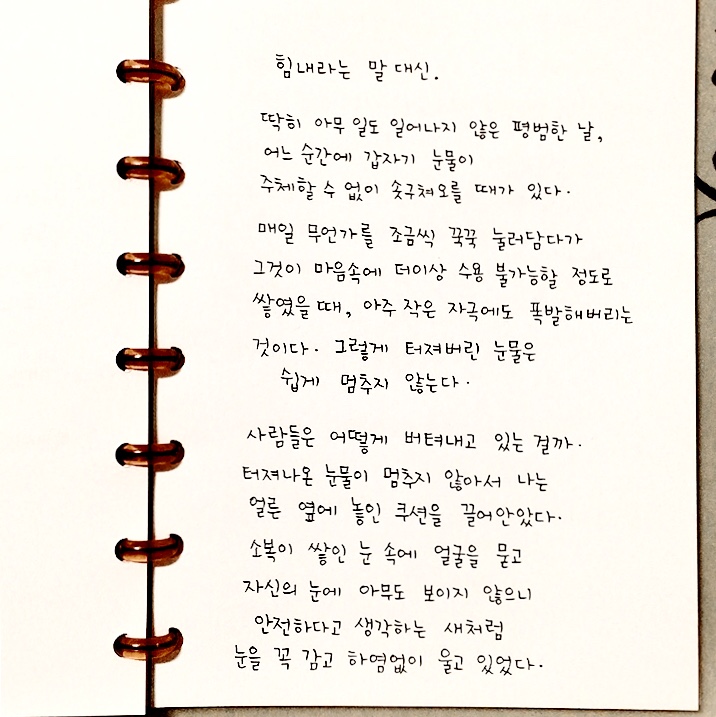 힘내라는 말 대신.
딱히 아무 일도 일어나지 않은 평범한 날,
어느 순간에 갑자기 눈물이
주체할 수 없이 솟구쳐오를 때가 있다.
매일 무언가를 조금씩 꾹꾹 눌러담다가
그것이 마음속에 더이상 수용 불가능할 정도로
쌓였을 때, 아주 작은 자극에도 폭발해버리는
것이다. 그렇게 터져버린 눈물은
쉽게 멈추지 않는다.
사람들은 어떻게 버텨내고 있는 걸까.
터져나온 눈물이 멈추지 않아서 나는
얼른 옆에 놓인 쿠션을 끌어안았다.
소복이 쌓인 눈 속에 얼굴을 묻고
자신의 눈에 아무도 보이지 않으니
안전하다고 생각하는 새처럼
눈을 꼭 감고 하염없이 울고 있었다.